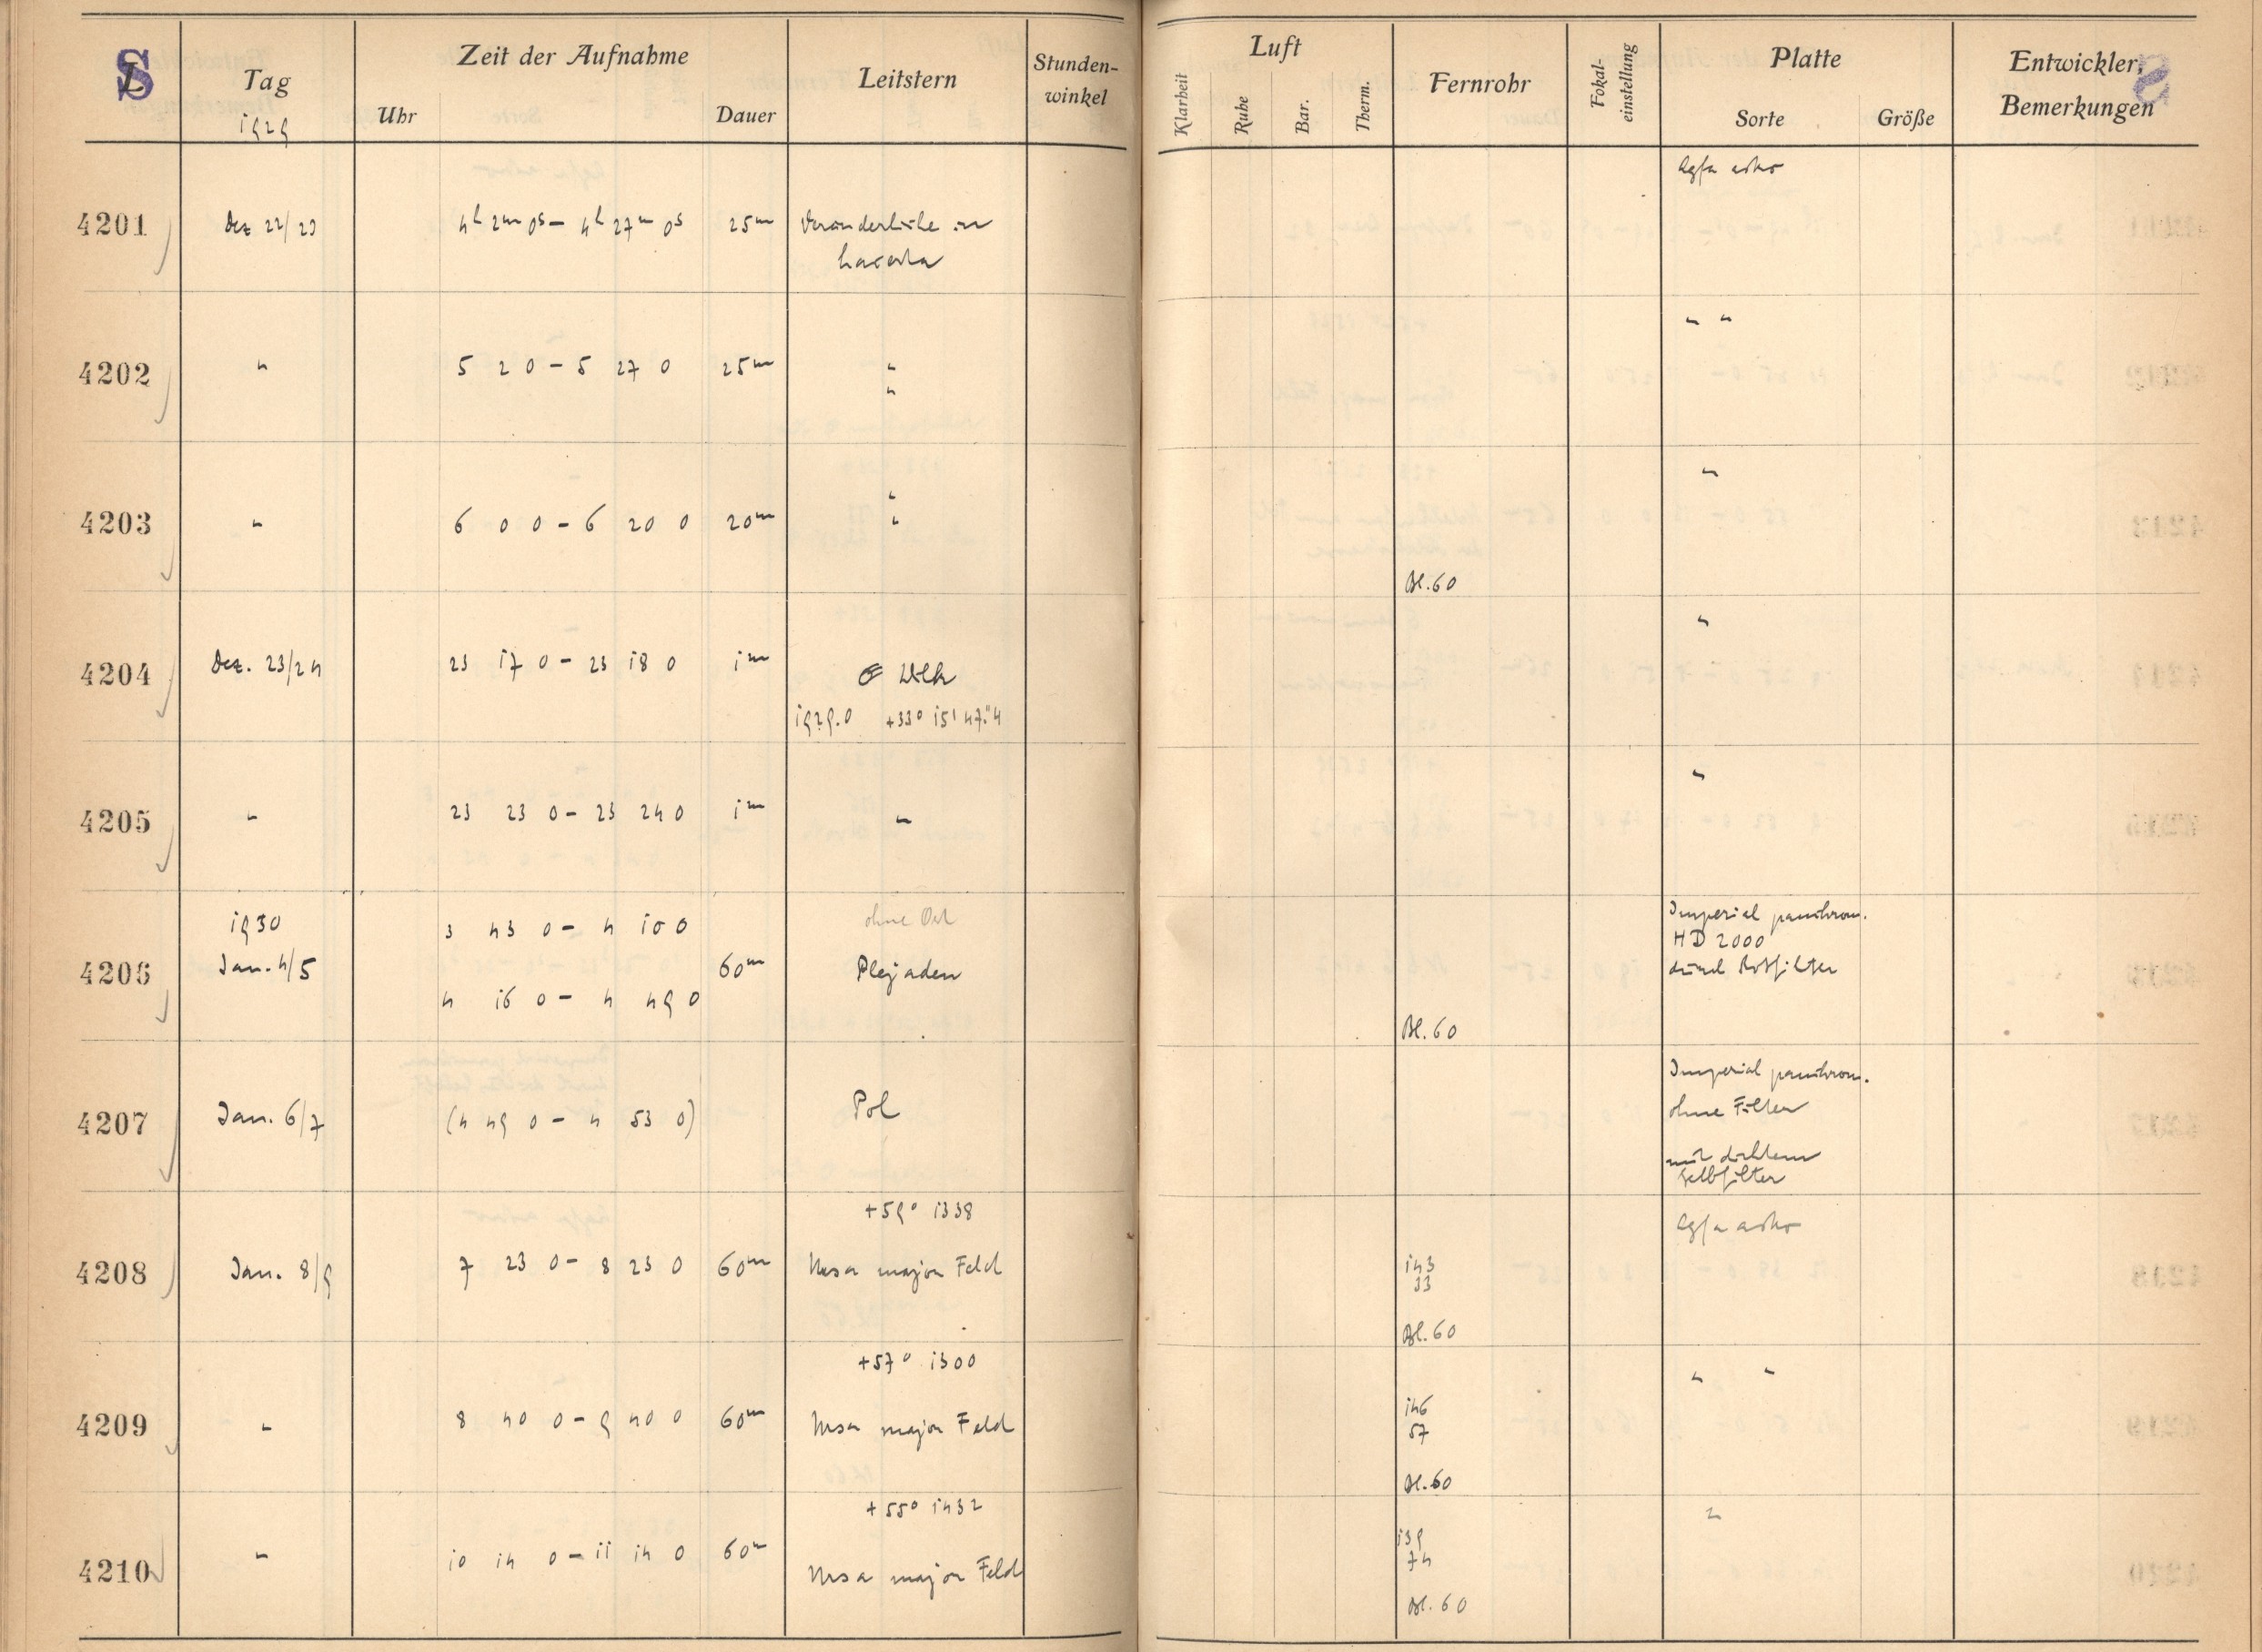 S
Tag
1929
Zeit der Aufnahme
Uhr
Dauer
Leitstern
Stunden-
winkel
Luft
Klarheit
Ruhe
Bar.
Therm.
Fernrohr
Fokal-
einstellung
Platte
Sorte
Größe
Entwickler,
Bemerkungen
Agfa astro
4201 Dez 22/23 4h 2m 0s – 4h 27m 0s 25m Veränderliche in
Lacerta
" "
4202 " 5 2 0 – 5 27 0 25m "
"
"
4203 " 6 0 0 – 6 20 0 20m "
"
Bl. 60
"
4204 Dez. 23/24 23 17 0 – 23 18 0 1m
1929.0 +33° 15' 47."4
"
4205 " 23 23 0 – 23 24 0 1m "
1930 3 43 0 – 4 10 0 ohne Ort Imperial panchrom.
HD 2000
4206 Jan. 4/5 60m Plejaden durch Rotfilter
4 16 0 – 4 49 0
Bl. 60
Imperial panchrom.
4207 Jan. 6/7 (4 49 0 – 4 53 0) Pol ohne Filter
mit dichtem
Gelbfilter
+59° 1338 Agfa astro
4208 Jan. 8/9 7 23 0 – 8 23 0 60m Ursa major Feld 143
33
Bl. 60
+57° 1300 " "
4209 " 8 40 0 – 9 40 0 60m Ursa major Feld 146
57
Bl. 60
+55° 1432 "
4210 " 10 14 0 – 11 14 0 60m Ursa major Feld 139
74
Bl. 60